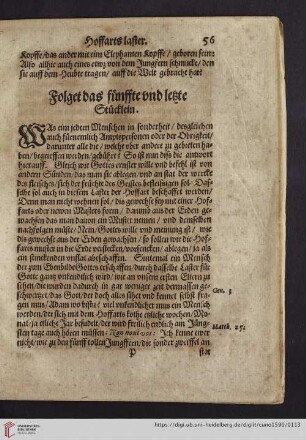 Hoffarts laster. 56
Kopffe/das ander mit eim Elephanten Kopffe/ geboren sein:
Also allhie auch eines etwz von dem Jungfern schmucke/den
sie auff dem Heubte tragen/ auff die Welt gebracht hat
Folget das fünffte vnd letzte
Stücklein.
WAs eim jedem Menschen in sonderheit/ desgleichen
auch fürnemlich Amptspersonen oder der Obrigkeit/
darunter alle die/ welche ober andere zu gebieten ha-
ben/ begrieffen werden/gebühret? So ist nun dis die antwort
hierauff. Gleich wie Gottes ernster wille vnd befehl ist von
andern Sünden/das man sie ablege/ vnd an stat der wercke
des fleisches/sich der früchte des Geistes befleissigen sol/ Das-
selbe sol auch in diesem Laster der Hoffart beschaffet werden/
Denn man nicht wehnen sol/ dis gewechse sey mit einer Hof-
farts oder newen Musters form/ darumb aus der Erden ge-
wachsen das man dauon ein Muster nemen/ vnd demselben
nachfolgen müsse/ Nein/Gottes wille vnd meinung ist/ wie
dis gewechse aus der Erden gewachsen/ so sollen wir die Hof-
farts muster in die Erde verstecken/ ablegen/ ja als
ein stinckenden vnflat abeschaffen. Sintemal ein Mensch
der zum Ebenbilde Gottes erschaffen/durch dasselbe Laster für
Gott gantz vnkendlich wird/ wie an vnsern ersten Eltern zu
sehen/die würden dadurch in gar weniger zeit dermassen ge-
schwertzet/das Gott/der doch alles sihet vnd kennet/selbst fra-
gen mus/Adam wo bistu? viel vnkendlicher mus ein Mensch
werden/der sich mit dem Hoffarts kothe etliche wochen/Mo-
nat/ja etliche Jar besudelt/ der wird freilich endlich am Jüng-
sten tage auch hören müssen/ Non noui vos: Ich kenne ewer
nicht/ wie zu den fünff tollen Jungfrawen/die sonder zweiffel an
Gen. 3
Matth. 25.
P
stat
http://digi.ub.uni-heidelberg.de/diglit/cuno1590/0113